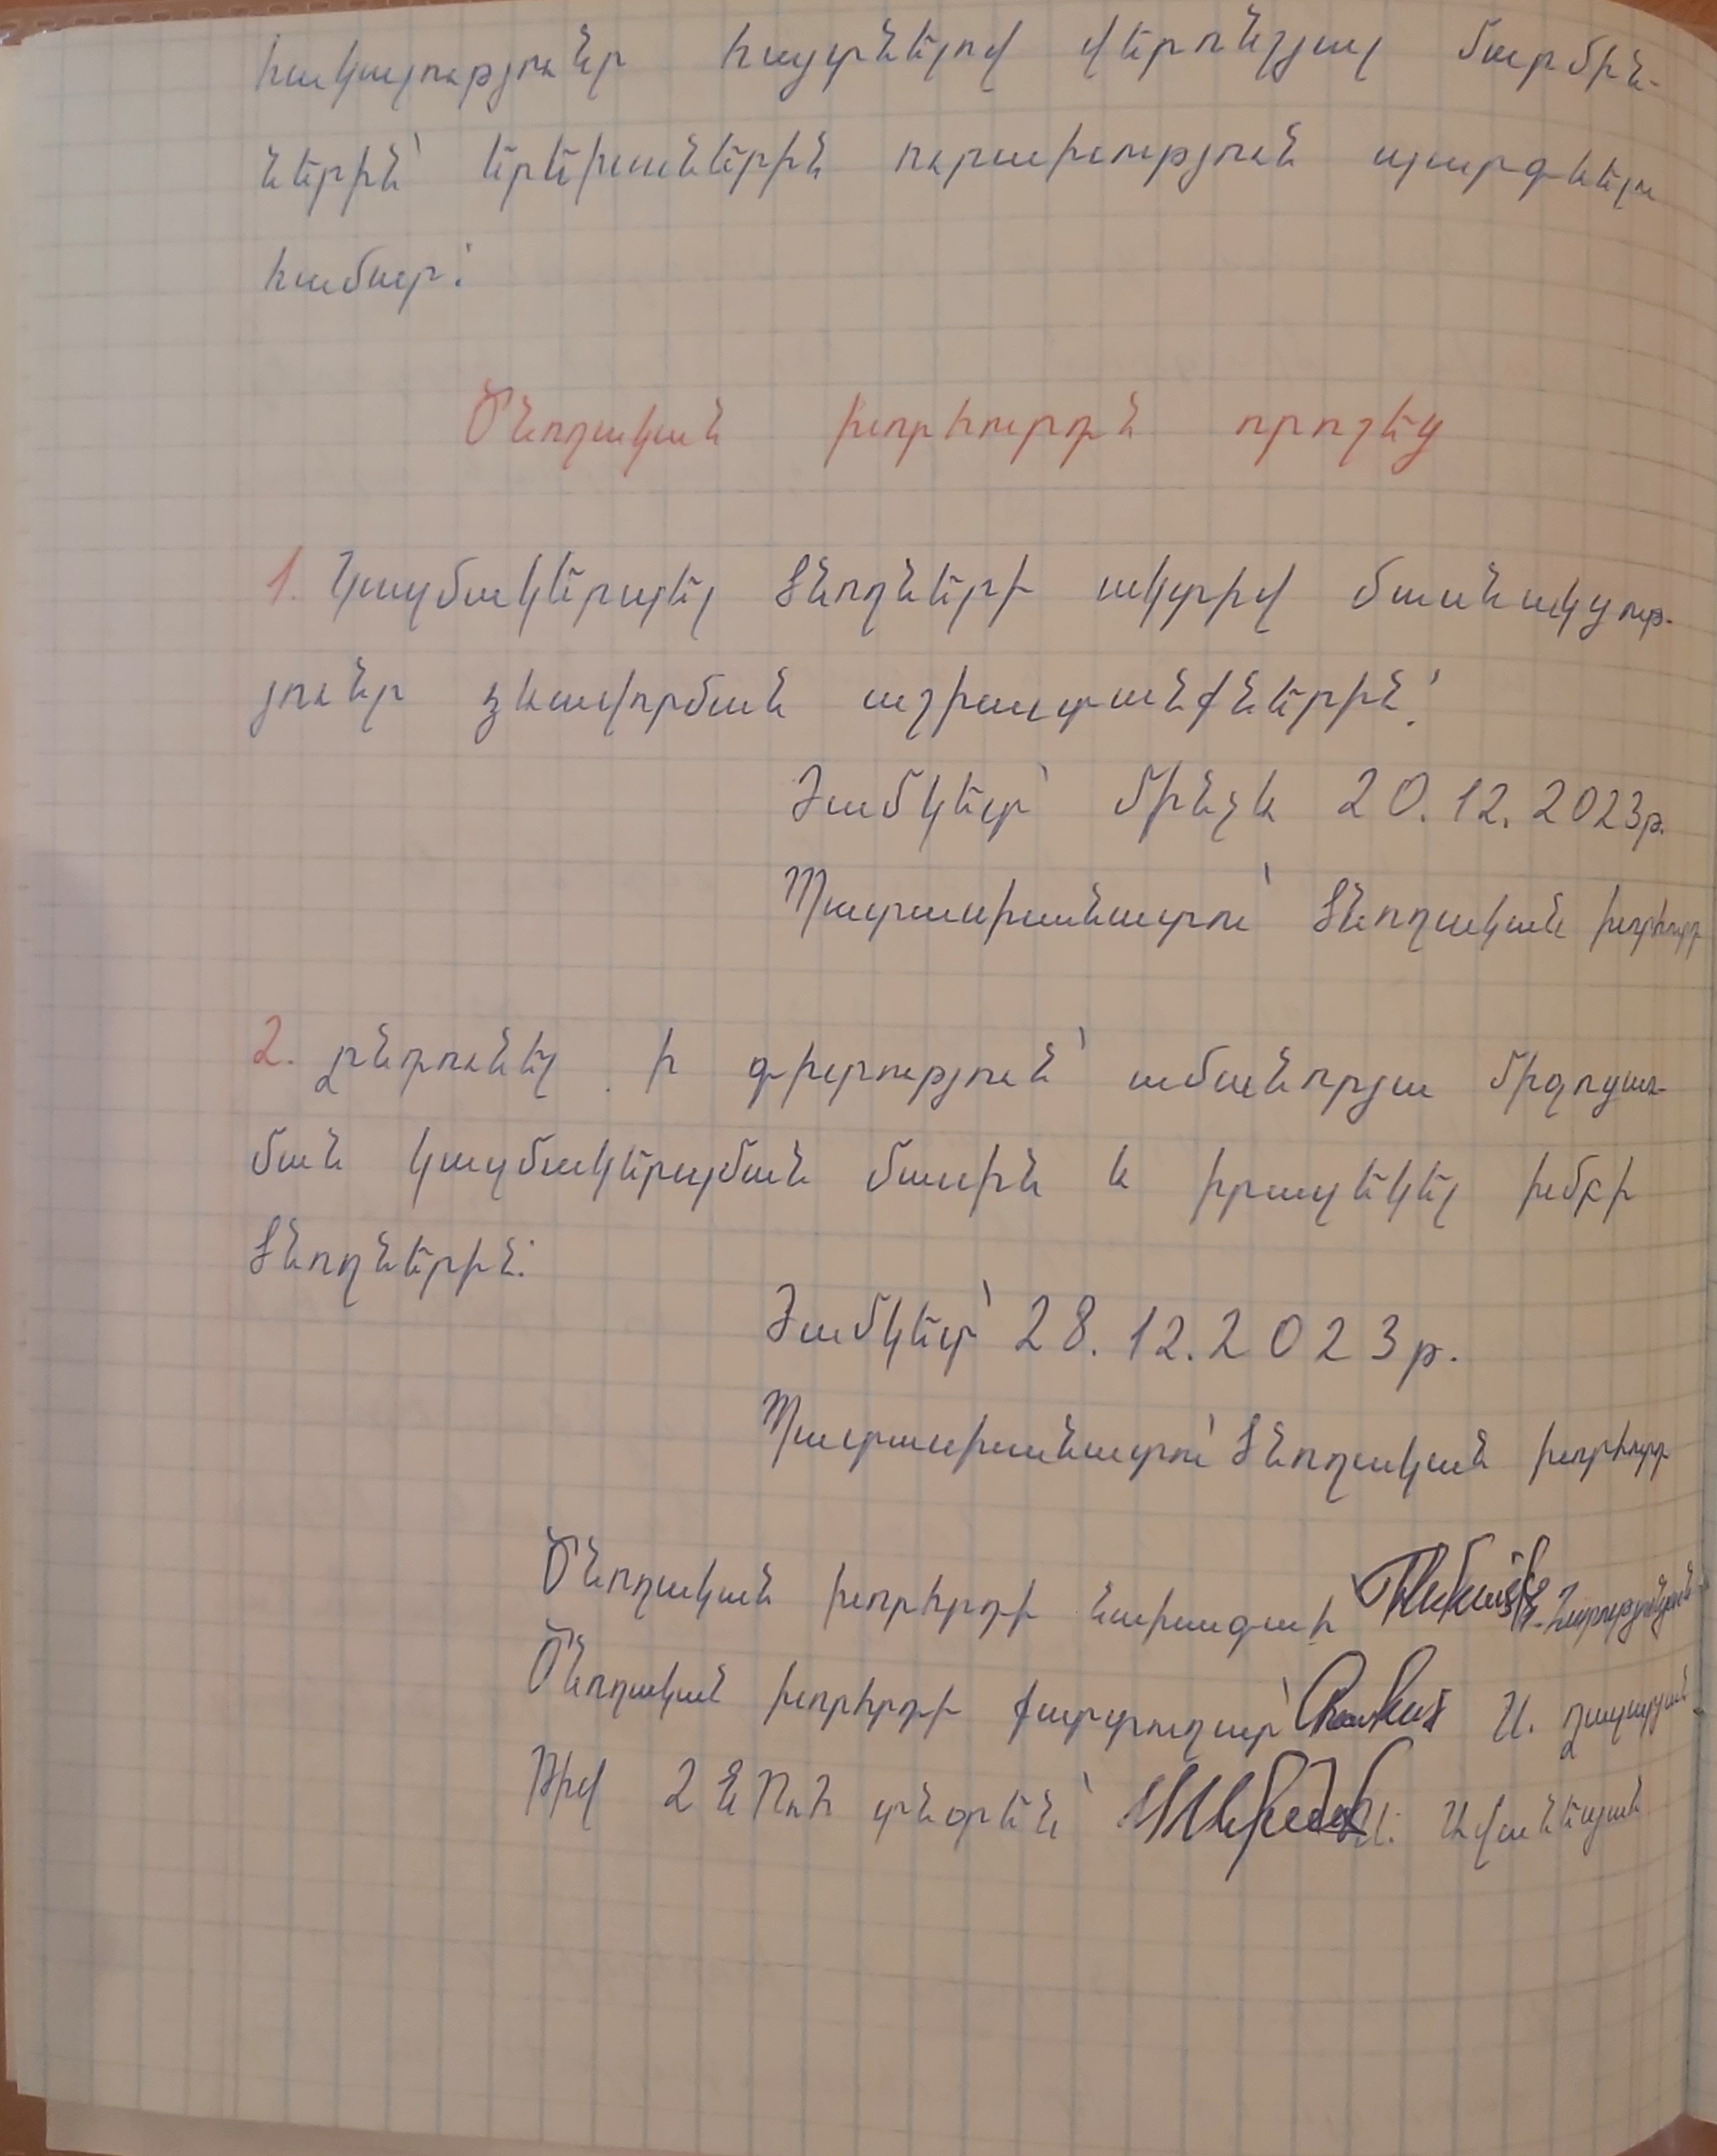 հակալություններ հայտնելով վերոնշյալ մարմին-
ներին՝ երեխաներին ուրախություն պարգևելու
համար:
Ծնողական խորհուրդն որոշեց
1. Կազմակերպել ծնողների ակտիվ մասնակցութ-
յունը ձևավորման աշխատանքներին:
Ժամկետ՝ մինչև 20.12.2023թ.
Պատասխանատու՝ ծնողական խորհուրդ
2. Ընդունել ի գիտություն՝ ամանորյա միջոցառ-
ման կազմակերպման մասին և իրազեկել խմբի
ծնողներին:
Ժամկետ՝ 28.12.2023թ.
Պատասխանատու՝ ծնողական խորհուրդ
Ծնողական խորհրդի նախագահ Հարությունյան
Ծնողական խորհրդի քարտուղար՝ Ա. Ղազարյան
Թիվ 2 ՆՈւՀ տնօրեն՝ Ա. Ավանեսյան